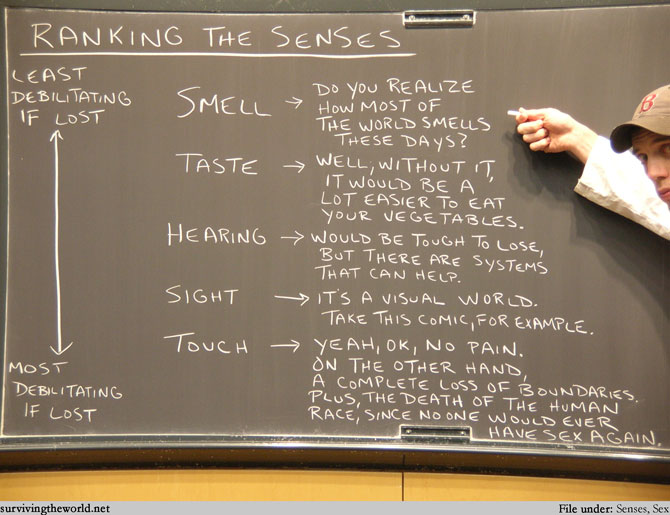 RANKING THE SENSES
LEAST
DEBILITATING
IF LOST
SMELL → DO YOU REALIZE
HOW MOST OF
THE WORLD SMELLS
THESE DAYS?
TASTE → WELL, WITHOUT IT,
IT WOULD BE A
LOT EASIER TO EAT
YOUR VEGETABLES.
HEARING → WOULD BE TOUGH TO LOSE,
BUT THERE ARE SYSTEMS
THAT CAN HELP.
SIGHT → IT'S A VISUAL WORLD.
TAKE THIS COMIC, FOR EXAMPLE.
TOUCH → YEAH, OK, NO PAIN.
ON THE OTHER HAND,
A COMPLETE LOSS OF BOUNDARIES.
PLUS, THE DEATH OF THE HUMAN
RACE, SINCE NO ONE WOULD EVER
HAVE SEX AGAIN.
MOST
DEBILITATING
IF LOST
B
survivingtheworld.net
File under: Senses, Sex